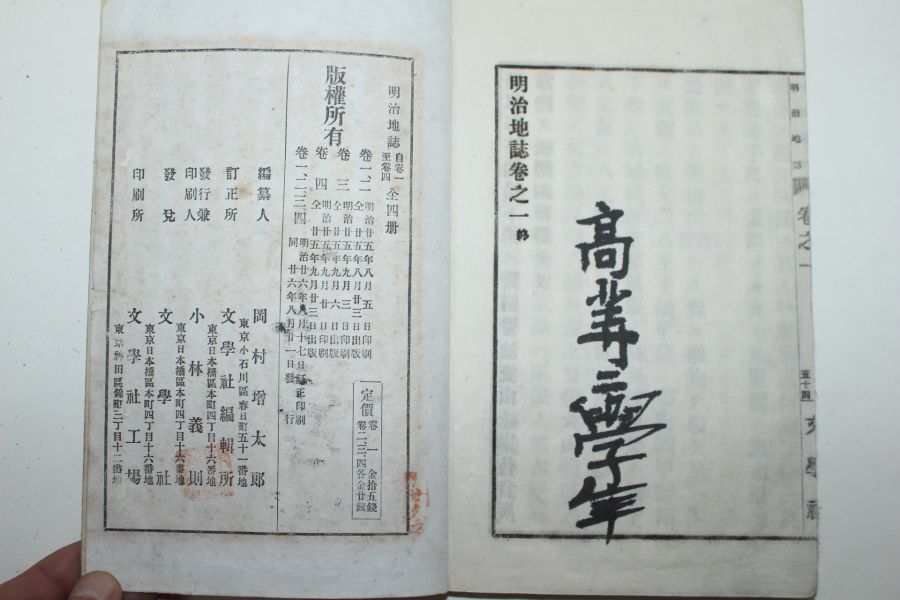 明治地誌卷之一 終
高等二學年
明治地誌
卷之一
五十四
文學社
明治地誌 自卷一至卷四 全四册
版權所有
卷一、二 明治廿五年八月五日印刷
仝 廿五年八月廿三日出版
卷三 明治廿五年九月三日印刷
仝 廿五年九月六日出版
卷四 明治廿五年九月廿日印刷
仝 廿五年九月廿三日出版
卷一、二、三、四 明治廿六年八月十七日訂正印刷
同 廿六年八月廿一日發行
定價 卷一 金拾五錢
卷二、三、四各金廿錢
編纂人 岡村增太郎
東京小石川區春日町五十一番地
訂正所 文學社編輯所
東京日本橋區本町四丁目十六番地
發行兼印刷人 小林義則
東京日本橋區本町四丁目十六番地
發兌 文學社
東京日本橋區本町四丁目十六番地
印刷所 文學社工場
東京神田區錦町三丁目十二番地